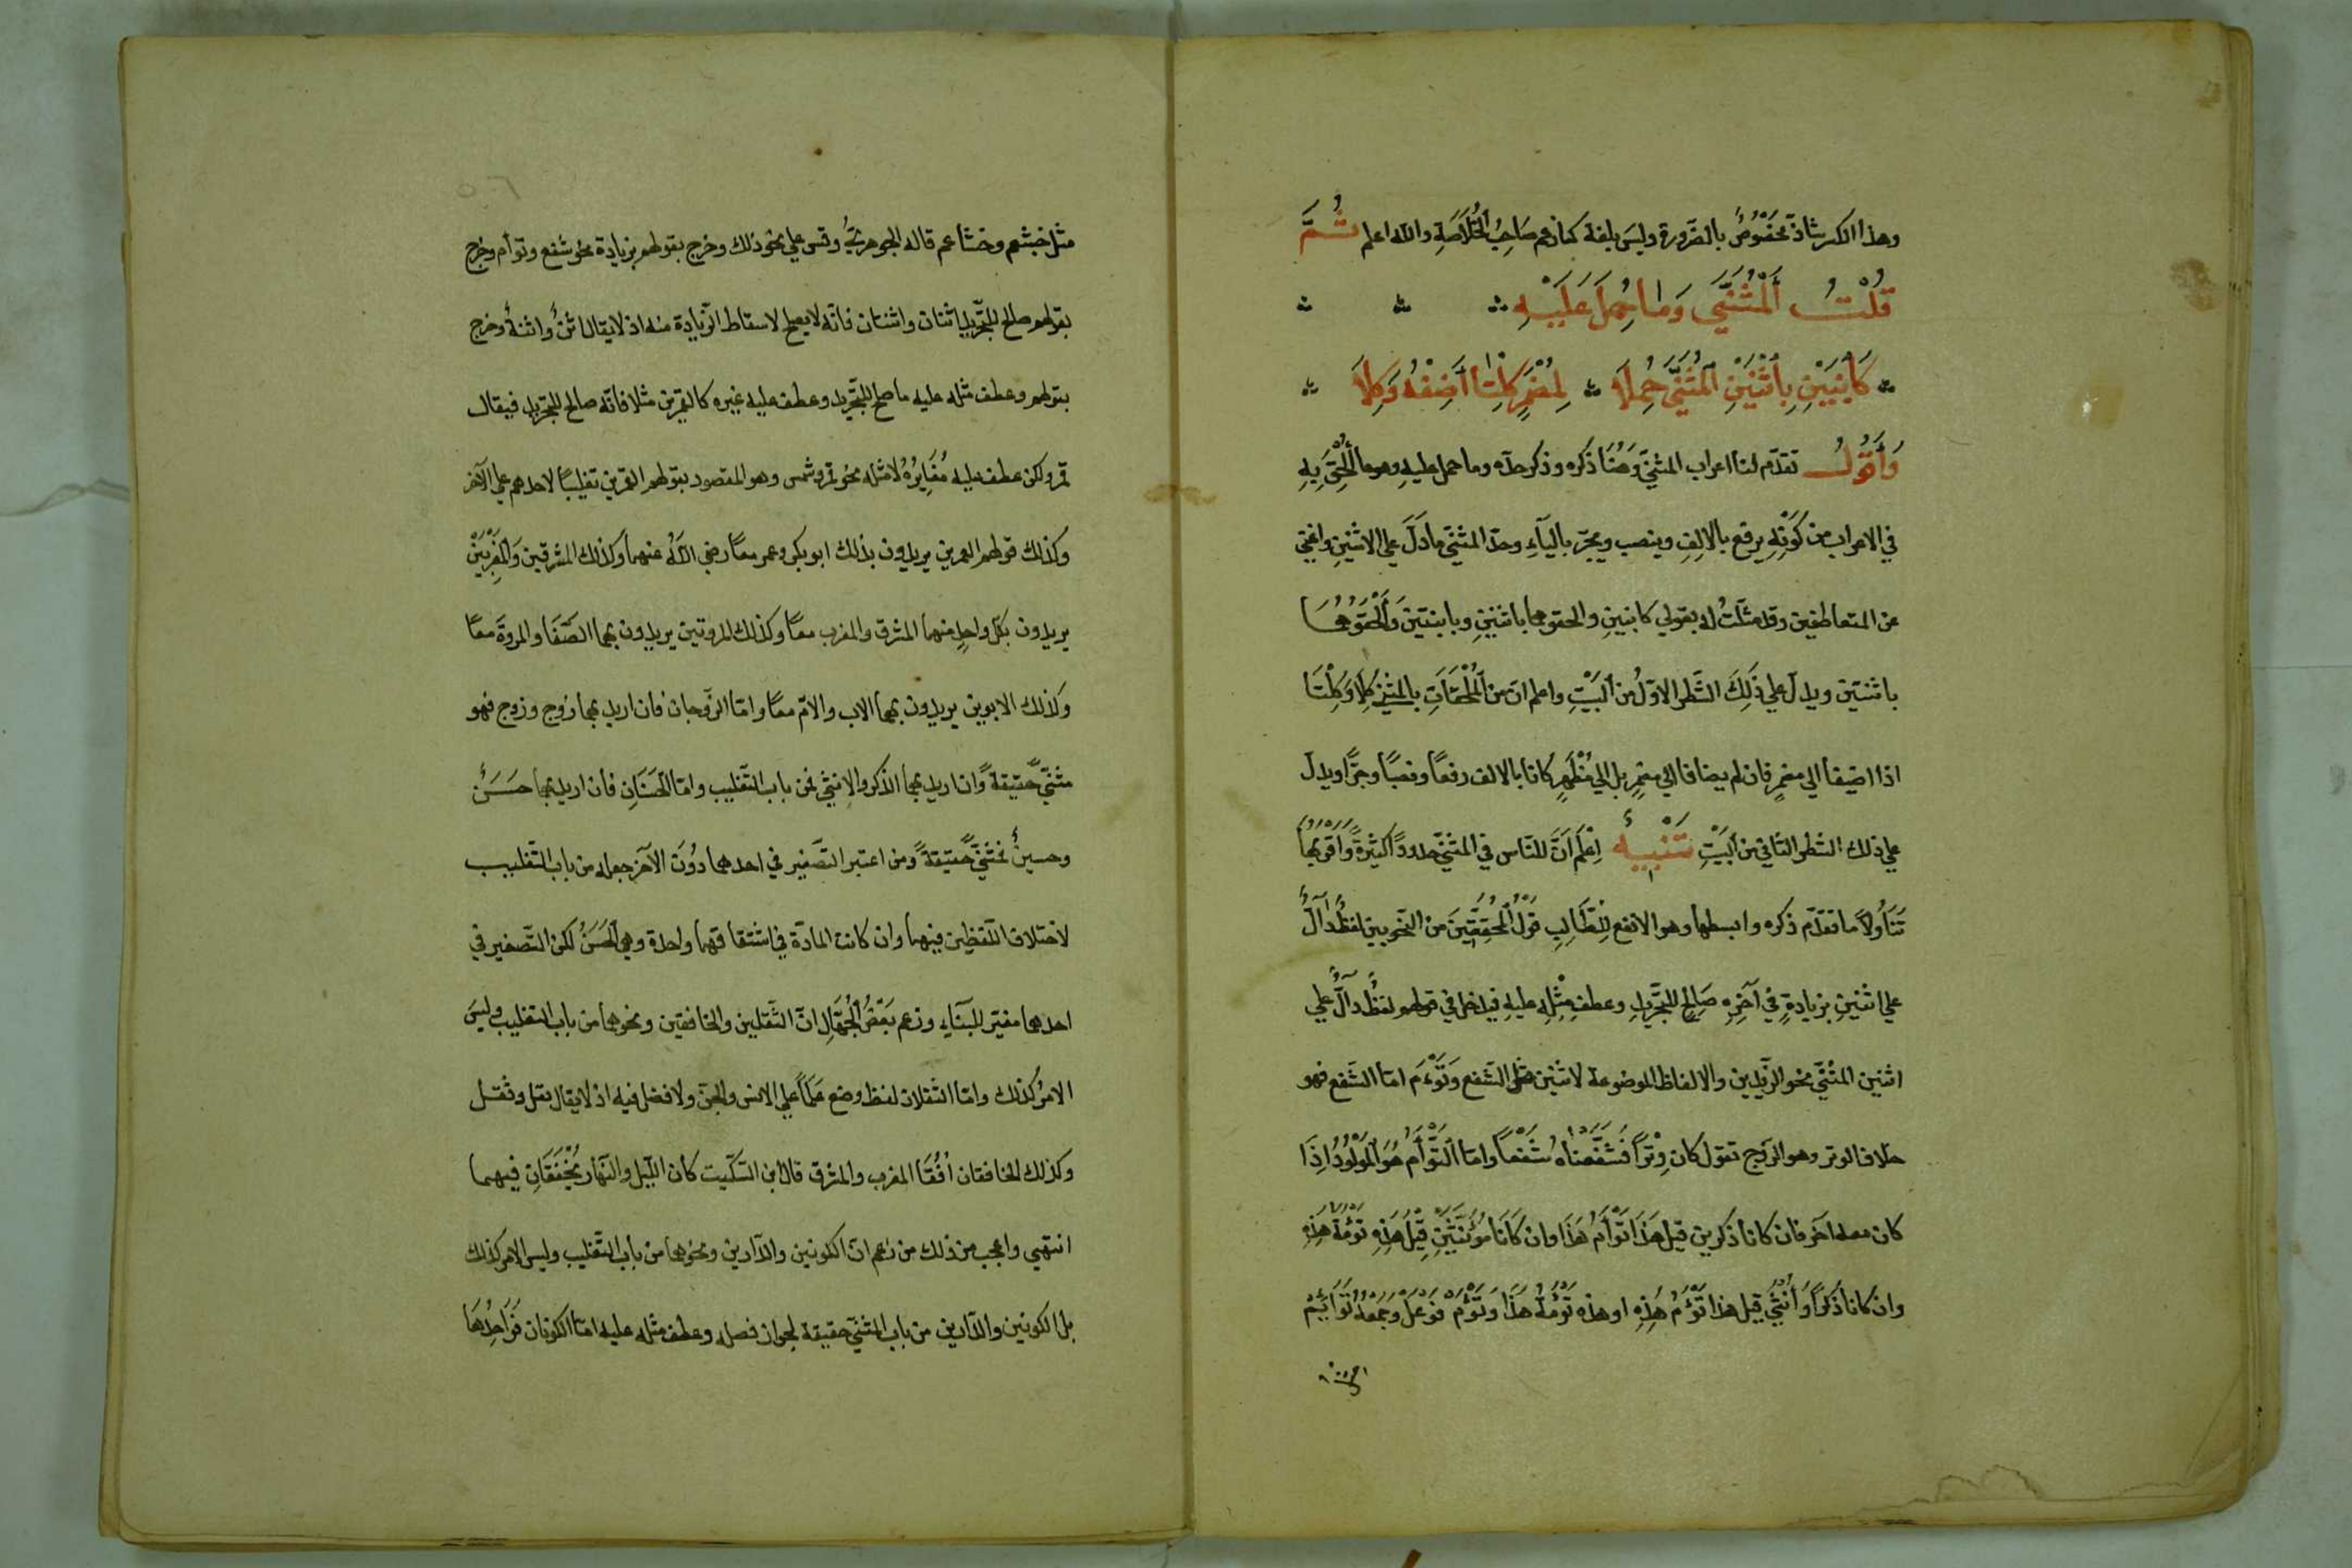 وهذا الكسر شاذ مخصوص بالضرورة وليس بلغة كما زعم صاحب الخلاصة والله اعلم ثُمَّ
قُلْتُ اَلْمُثَنَّى وَمَا حُمِلَ عَلَيْهِ
كَابْنَيْنِ بِاثْنَيْنِ الْمُثَنَّى حُمِلَا لِمُضْمَرٍ كِلْتَا أَضِفْهُ وَكِلَا
وَأَقُولُ تقدّم لنا اعراب المثنّى وَهُنَا ذكره وذكر حدّه وما حمل عليهِ وهو ما أُلْحِقَ بِهِ
في الاعراب من كَوْنِهِ يرفع بالالِفِ وينصب ويجرّ باليآءِ وحدّ المثنّى مادَلَّ علي الاثنينِ واغني
عن المتعاطفين وقد مثّلتُ له بقولي كابنينِ والحقوهما باثنينِ وبابنتين وَأَلْحَقُوهُمَا
باثنتين ويدل علي ذَلِكَ الشّطر الاوّلُ من البَيْتِ واعلم انّ من الْمُلْحَقَاتِ بالمثني كِلَا وَكِلْتَا
اذا اضيفا الي مضمرٍ فان لم يضافا الي مضمرٍ بل الي مُظْهَرٍ كانا بالالف رفعًا ونصبًا وجرًّا ويدل
علي ذلك الشّطر الثّاني من البَيْتِ تَنْبِيهٌ اِعْلَمْ اَنَّ للنّاس في المثنّي حدودًا كثيرةً وَأَقْرَبُهَا
تَنَاوُلًا ما تقدّم ذكره وابسطها وهو الانفع لِلطَّالِبِ قَوْلُ الْمُحَقِّقِينَ من النّحويين لفظٌ دَآلٌّ
علي اثنينِ بزيادةٍ في آخِرِهِ صَالِحٌ للتّجْرِيدِ وعطفِ مِثْلِهِ عليهِ فيدخل في قولهم لفظٌ دآلٌّ علي
اثنين المثنّي نحو الزّيدين والالفاظ الموضوعة لاثنين مثل الشّفع وَتَوْءَم امّا الشّفع فهو
خلاف الوتر وهو الزّوج تقول كان وِتْرًا فَشَفَّعْنَاهُ شَفْعًا وامّا التَّوْأَمُ هُوَ الْمَوْلُودُ اِذَا
كان معه اخر فان كانا ذكرين قيل هَذَا تَوْأَمُ هَذَا وان كَانَا مُؤَنَّثَيْنِ قِيْلَ هَذِهِ تَوْءَمَةُ هَذِهِ
وان كانا ذَكَرًا وَأُنْثَي قيل هذا تَوْءَمُ هَذِهِ او هذه تَوْءَمَةُ هَذَا وَتَوْءَمٌ فَوْعَلٌ وَجَمْعُهُ تَوَائِمُ
مثل خشعم وخشاعم قاله الجوهريّ وقس علي نحو ذلك وخرج بقولهم بزيادة نحو شفع وتوأم وخرج
بقولهم صالح للتّجريد اثنان واثنتان فانّه لا يصلح لاسقاط الزّيادة منه اذ لا يقال اثنٌ واثنةٌ وخرج
بقولهم وعطف مثله عليه ما صلح للتّجريد وعطف عليه غيره كالقمرين مثلا فانّه صالح للتّجريد فيقال
قمر ولكن عطف عليه مُغَايِرُهُ لا مثله نحو قمر وشمس وهو المقصود بقولهم القمرين تغليبًا لاحدهم علي الآخر
وكذلك قولهم العمرين يريدون بذلك ابو بكر وعمر معًا رضي اللّه عنهما وكذلك المشرقين وَالْمَغْرِبَيْنِ
يريدون بكل واحدٍ منهما المشرق والمغرب معًا وكذلك المروتين يريدون بهما الصّفَا والمروةَ معًا
وكذلك الابوين يريدون بهما الاب والامّ معًا وامّا الزّوجان فان اريد بهما زوج وزوج فهو
مثنّيً حقيقةً وان اريد بهما الذّكر والانثي فمن باب التّغليب وامّا الحَسَنَانِ فان اريد بهما حَسَنٌ
وحسينٌ فمثنّيً حقيقةً ومن اعتبر التّصغير في احدهما دُونَ الآخر جعله من باب التّغليب
لاختلاف اللّفظين فيهما وان كانت المادّة في اشتقاقهما واحدة وهي الحُسَنُ لكن التّصغير في
احدهما مغيّر للبنَاءِ وزعم بَعْضُ الْجُهَّالِ انّ الثّقلين والخافقين ونحوهما من باب التّغليب وليس
الامر كذلك وامّا الثّقلان لفظ وضع عَلَمًا علي الانس والجنّ ولا فضل فيه اذ لا يقال ثقل وثقل
وكذلك الخافقان اُفُقَا المغرب والمشرق قال ابن السّكّيت كان اللّيل والنّهار يَخْفِقَانِ فيهما
انتهي واعجب من ذلك من زعم انّ الكونين والدّارين ونحوهما من باب التّغليب وليس الامر كذلك
بل الكونين والدّارين من باب المثنّي حقيقة لجواز فصله وعطف مثله عليه امّا الكونان فَوَاحِدُهَا